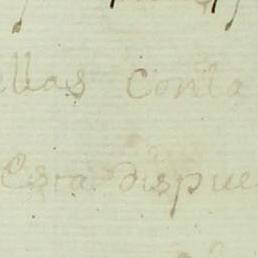 llas conta
Esra dispue